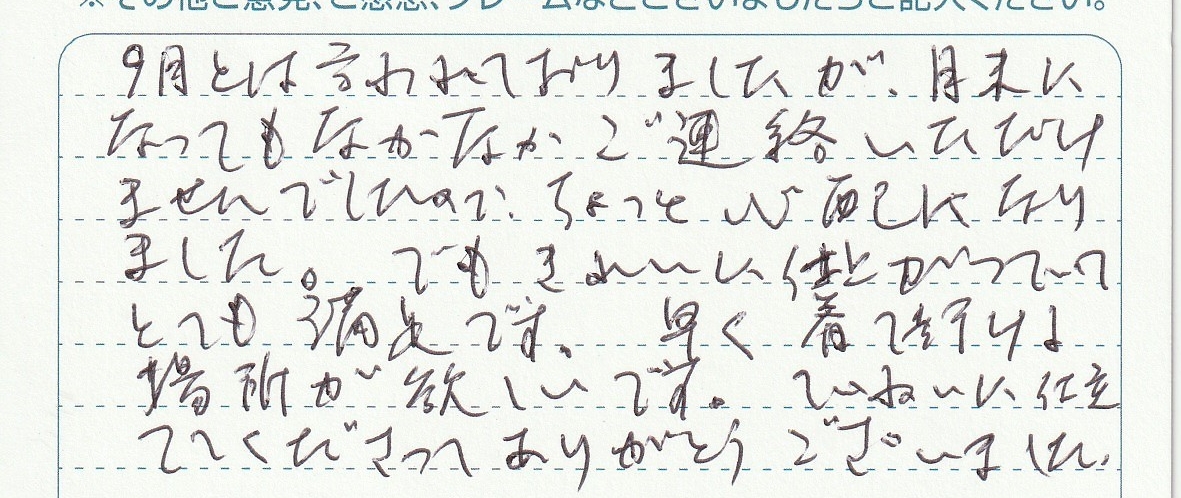 ※その他ご意見、ご感想、クレームなどございましたらご記入ください。
9月とは言われておりましたが、月末に
なってもなかなかご連絡いただけ
ませんでしたので、ちょっと心配になり
ました。 でもきれいに仕上がっていて
とても満足です。 早く着て行ける
場所が欲しいです。 ていねいに仕立
ててくださってありがとうございました。